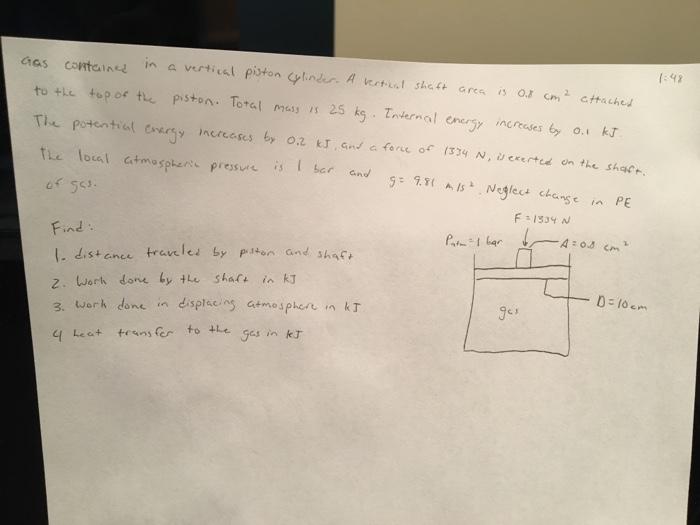 1:48
Gas contained in a vertical piston cylinder. A vertical shaft area is 0.8 cm² attached
to the top of the piston. Total mass is 25 kg. Internal energy increases by 0.1 kJ.
The potential energy increases by 0.2 kJ, and a force of 1334 N, is exerted on the shaft.
The local atmospheric pressure is 1 bar and g = 9.81 m/s². Neglect change in PE
of gas.
Find:
1. distance traveled by piston and shaft
2. Work done by the shaft in kJ
3. Work done in displacing atmosphere in kJ
4 heat transfer to the gas in kJ
F = 1334 N
Patm = 1 bar
A = 0.8 cm²
D = 10 cm
gas